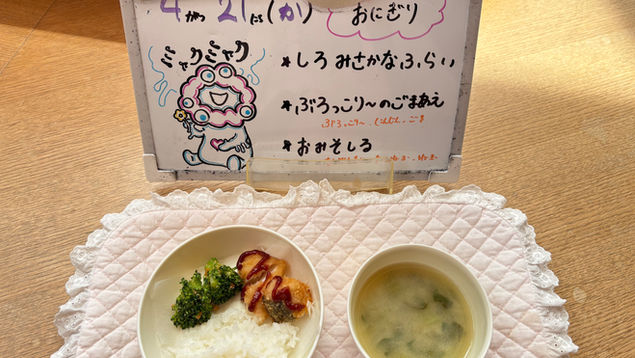 4がつ 21にち(か)
おにぎり
ミャクミャク
★しろみさかなふらい
★ぶろっこり〜のごまあえ
ぶろっこり〜、にんじん、ごま
★おみそしる